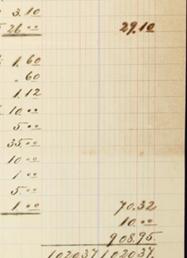 3.10
26.00 29.10
1.60
.60
1.12
10.00
5.00
35.00
10.00
1.00
5.00
1.00 70.32
10.00
908.95
1020.37 1020.37